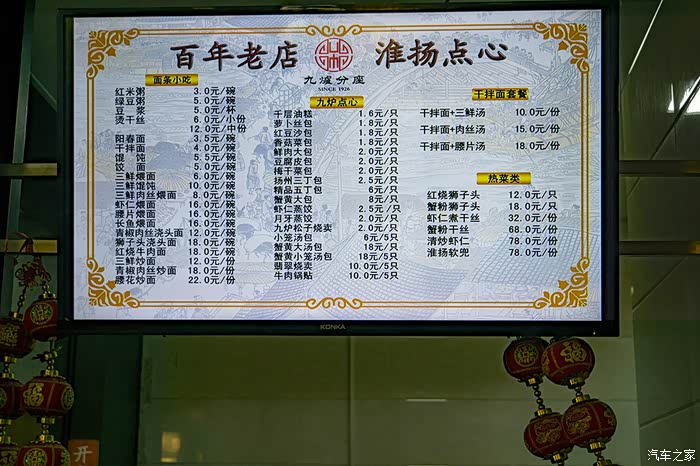 百年老店
淮扬点心
九爐分座
SINCE 1926
面条小吃
红米粥 3.0元/碗
绿豆粥 5.0元/碗
豆 浆 5.0元/杯
烫干丝 6.0元/小份
12.0元/中份
阳春面 3.5元/碗
干拌面 4.0元/碗
馄 饨 5.5元/碗
饺 面 5.0元/碗
三鲜煨面 6.0元/碗
三鲜馄饨 10.0元/碗
三鲜肉丝煨面 8.0元/碗
虾仁煨面 16.0元/碗
腰片煨面 16.0元/碗
长鱼煨面 16.0元/碗
青椒肉丝浇头面 12.0元/碗
狮子头浇头面 18.0元/碗
红烧牛肉面 18.0元/碗
三鲜炒面 12.0元/份
青椒肉丝炒面 18.0元/份
腰花炒面 22.0元/份
九炉点心
千层油糕 1.6元/只
萝卜丝包 1.8元/只
红豆沙包 1.8元/只
香菇菜包 1.8元/只
鲜肉大包 2.0元/只
豆腐皮包 2.0元/只
梅干菜包 2.0元/只
扬州三丁包 2.5元/只
精品五丁包 6元/只
蟹黄大包 8元/只
虾仁蒸饺 2.5元/只
月牙蒸饺 2.0元/只
九炉松子烧卖 2.0元/只
小笼汤包 6元/5只
蟹黄大汤包 18元/只
蟹黄小笼汤包 18元/5只
翡翠烧卖 10.0元/5只
牛肉锅贴 10.0元/5只
干拌面套餐
干拌面+三鲜汤 10.0元/份
干拌面+肉丝汤 15.0元/份
干拌面+腰片汤 18.0元/份
热菜类
红烧狮子头 12.0元/只
蟹粉狮子头 18.0元/只
虾仁煮干丝 32.0元/份
蟹粉干丝 68.0元/份
清炒虾仁 78.0元/份
淮扬软兜 78.0元/份
KONKA
开
汽车之家